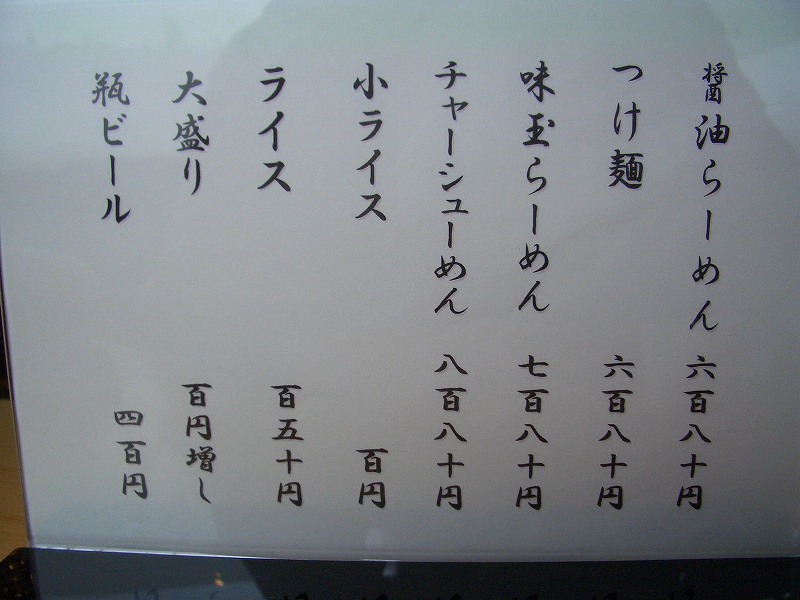 醤油らーめん 六百八十円
つけ麺 六百八十円
味玉らーめん 七百八十円
チャーシューめん 八百八十円
小ライス 百円
ライス 百五十円
大盛り 百円増し
瓶ビール 四百円